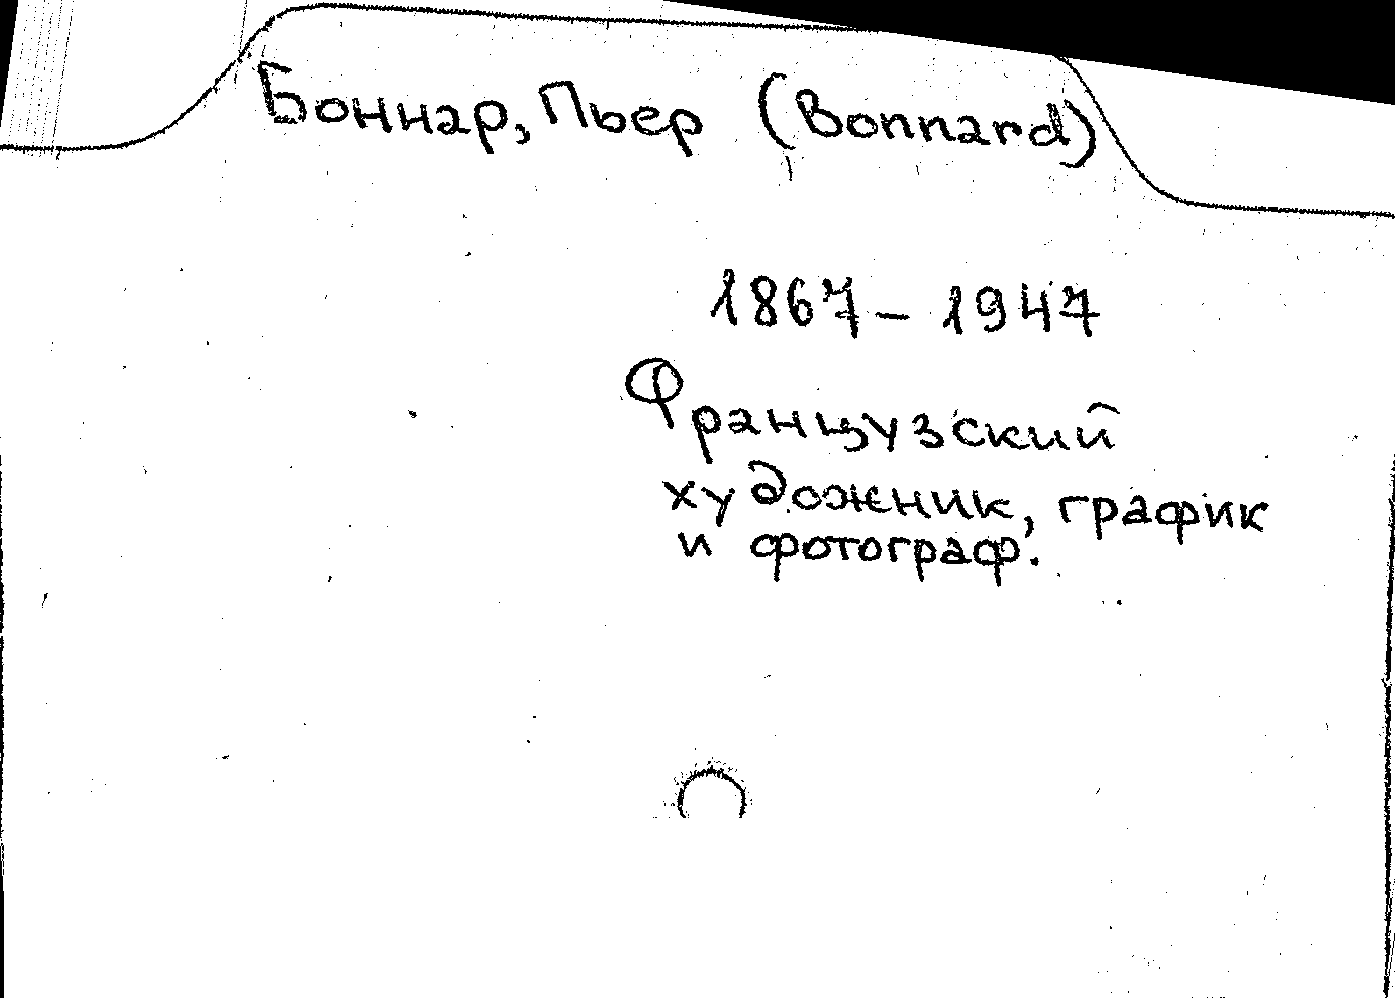 Боннар, Пьер (Bonnard)
1867 – 1947
Французский
художник, график
и фотограф.